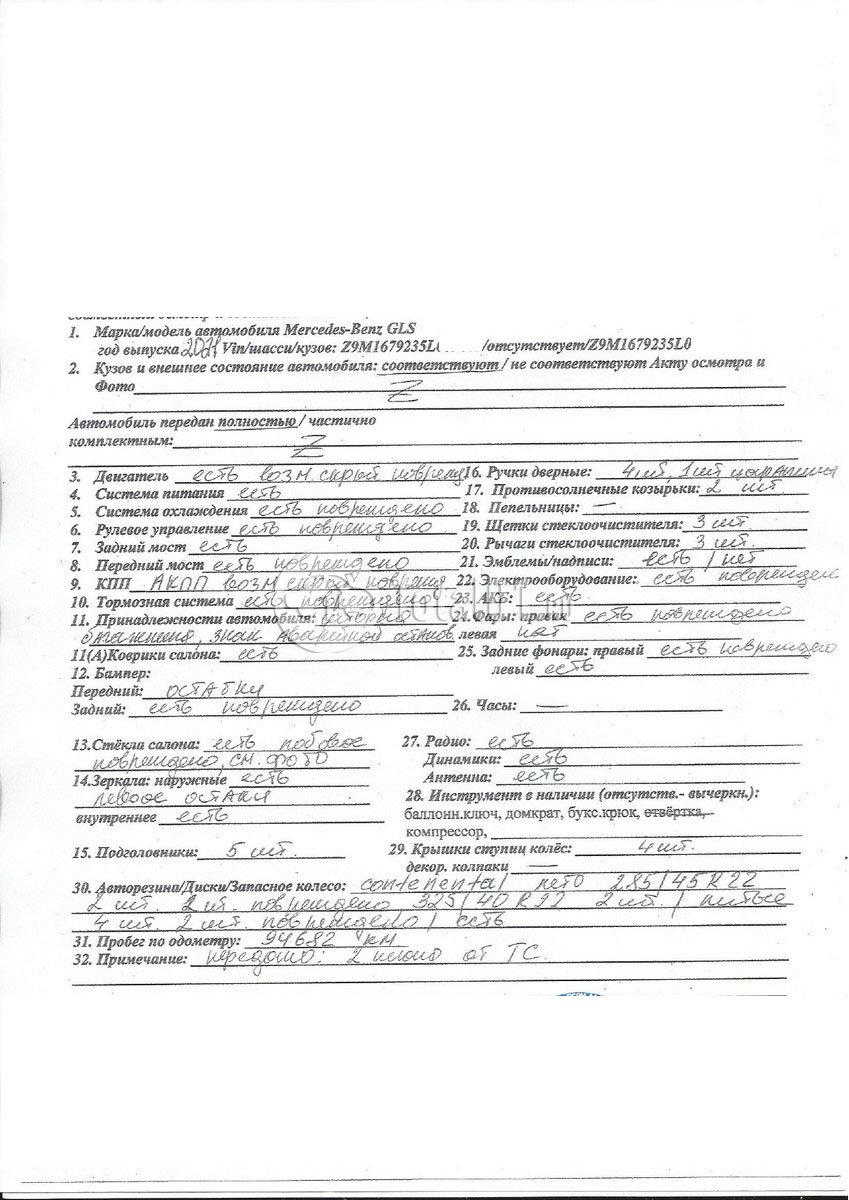 1. Марка/модель автомобиля Mercedes-Benz GLS
год выпуска 2021 Vin/шасси/кузов: Z9M1679235L /отсутствует/Z9M1679235L0
2. Кузов и внешнее состояние автомобиля: соответствуют / не соответствуют Акту осмотра и
Фото Z
Автомобиль передан полностью / частично
комплектным: Z
3. Двигатель есть возм. скрыт поврежд
4. Система питания есть
5. Система охлаждения есть повреждено
6. Рулевое управление есть повреждено
7. Задний мост есть
8. Передний мост есть повреждено
9. КПП АКПП возм скрыт
10. Тормозная система есть повреждено
11. Принадлежности автомобиля: шторка
багажника, знак аварийной останов.
11(А)Коврики салона: есть
12. Бампер:
Передний: остатки
Задний: есть повреждено
13.Стёкла салона: есть лобовое
повреждено, см. фото
14.Зеркала: наружные есть
левое остаки
внутреннее есть
15. Подголовники: 5 шт.
16. Ручки дверные: 4 шт, 1 шт царапины
17. Противосолнечные козырьки: 2 шт
18. Пепельницы: —
19. Щетки стеклоочистителя: 3 шт
20. Рычаги стеклоочистителя: 3 шт.
21. Эмблемы/надписи: есть / нет
22. Электрооборудование: есть поврежден
23. АКБ: есть
24. Фары: правая есть повреждено
левая нет
25. Задние фонари: правый есть повреждено
левый есть
26. Часы: —
27. Радио: есть
Динамики: есть
Антенна: есть
28. Инструмент в наличии (отсутств.- вычеркн.):
баллонн.ключ, домкрат, букс.крюк, отвёртка,
компрессор,
29. Крышки ступиц колёс: 4 шт.
декор. колпаки —
30. Авторезина/Диски/Запасное колесо: contenental лето 285/45 R 22
2 шт. 2 шт. повреждено 325/40 R 22 2 шт. / литые
4 шт. 2 шт. повреждено / есть
31. Пробег по одометру: 94682 км
32. Примечание: передано: 2 ключа от ТС.